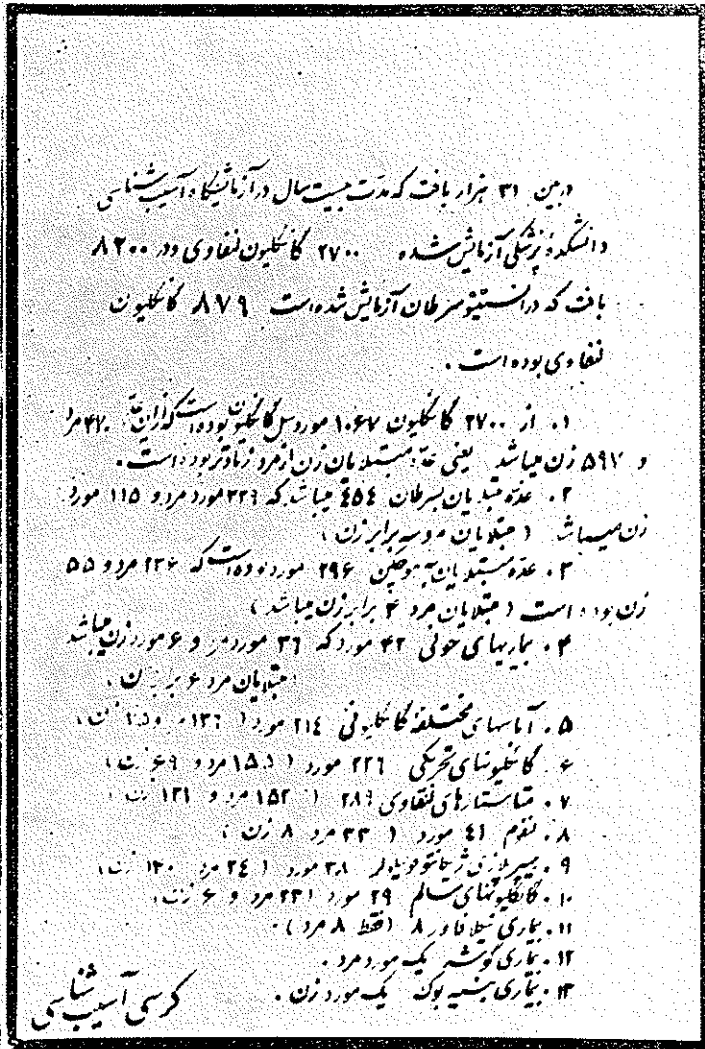 دربین ۳۱ هزار بافت که مدت بیست سال در آزمایشگاه آسیب شناسی
دانشکدهٔ پزشکی آزمایش شده ۲۷۰۰ گانگلیون لنفاوی ودر ۸۲۰۰
بافت که در انستیتو سرطان آزمایش شده است ۸۷۹ گانگلیون
لنفاوی بوده است .
۱. از ۲۷۰۰ گانگلیون ۱۰۶۷ مورد سل گانگلیون بوده است که از این عده ۴۷۰ مرد
و ۵۹۷ زن میباشد یعنی عدهٔ مبتلایان زن از مرد زیادتر بوده است .
۲. عدهٔ مبتلایان بسرطان ٤٥٤ میباشد که ۳۳۹ مورد مرد و ۱۱۵ مورد
زن میباشد ( مبتلایان مرد سه برابر زن )
۳. عدهٔ مبتلایان به هوچکین ۲۹۶ مورد بوده است که ۲۳۶ مرد و ۵۵
زن بوده است ( مبتلایان مرد ۴ برابر زن میباشد )
۴. بیماریهای خونی ۴۲ مورد که ۳٦ مورد مرد و ۶ مورد زن میباشد
مبتلایان مرد ۶ برابر زن .
۵. آماسهای مختلفه گانگلیونی ۲۱٤ مورد ( ۱۳٦ مرد و زن )
۶. گانگلیونهای تحریکی ۲۲٦ مورد ( ۱۵۵ مرد و ٦۹ زن )
۷. متاستازهای لنفاوی ۲۸۹ ( ۱۵۲ مرد و ۱۳۱ زن )
۸. لنفوم ٤١ مورد ( ۳۳ مرد ۸ زن )
۹. ۳۸ مورد ( ۲٤ مرد زن )
۱۰. گانگلیونهای سالم ۲۹ مورد ( ۲۳ مرد و ۶ زن )
۱۱. بیماری ۸ (فقط ۸ مرد) .
۱۲. بیماری گوشه یک مورد مرد .
۱۳. بیماری یک مورد زن .
کرسی آسیب شناسی